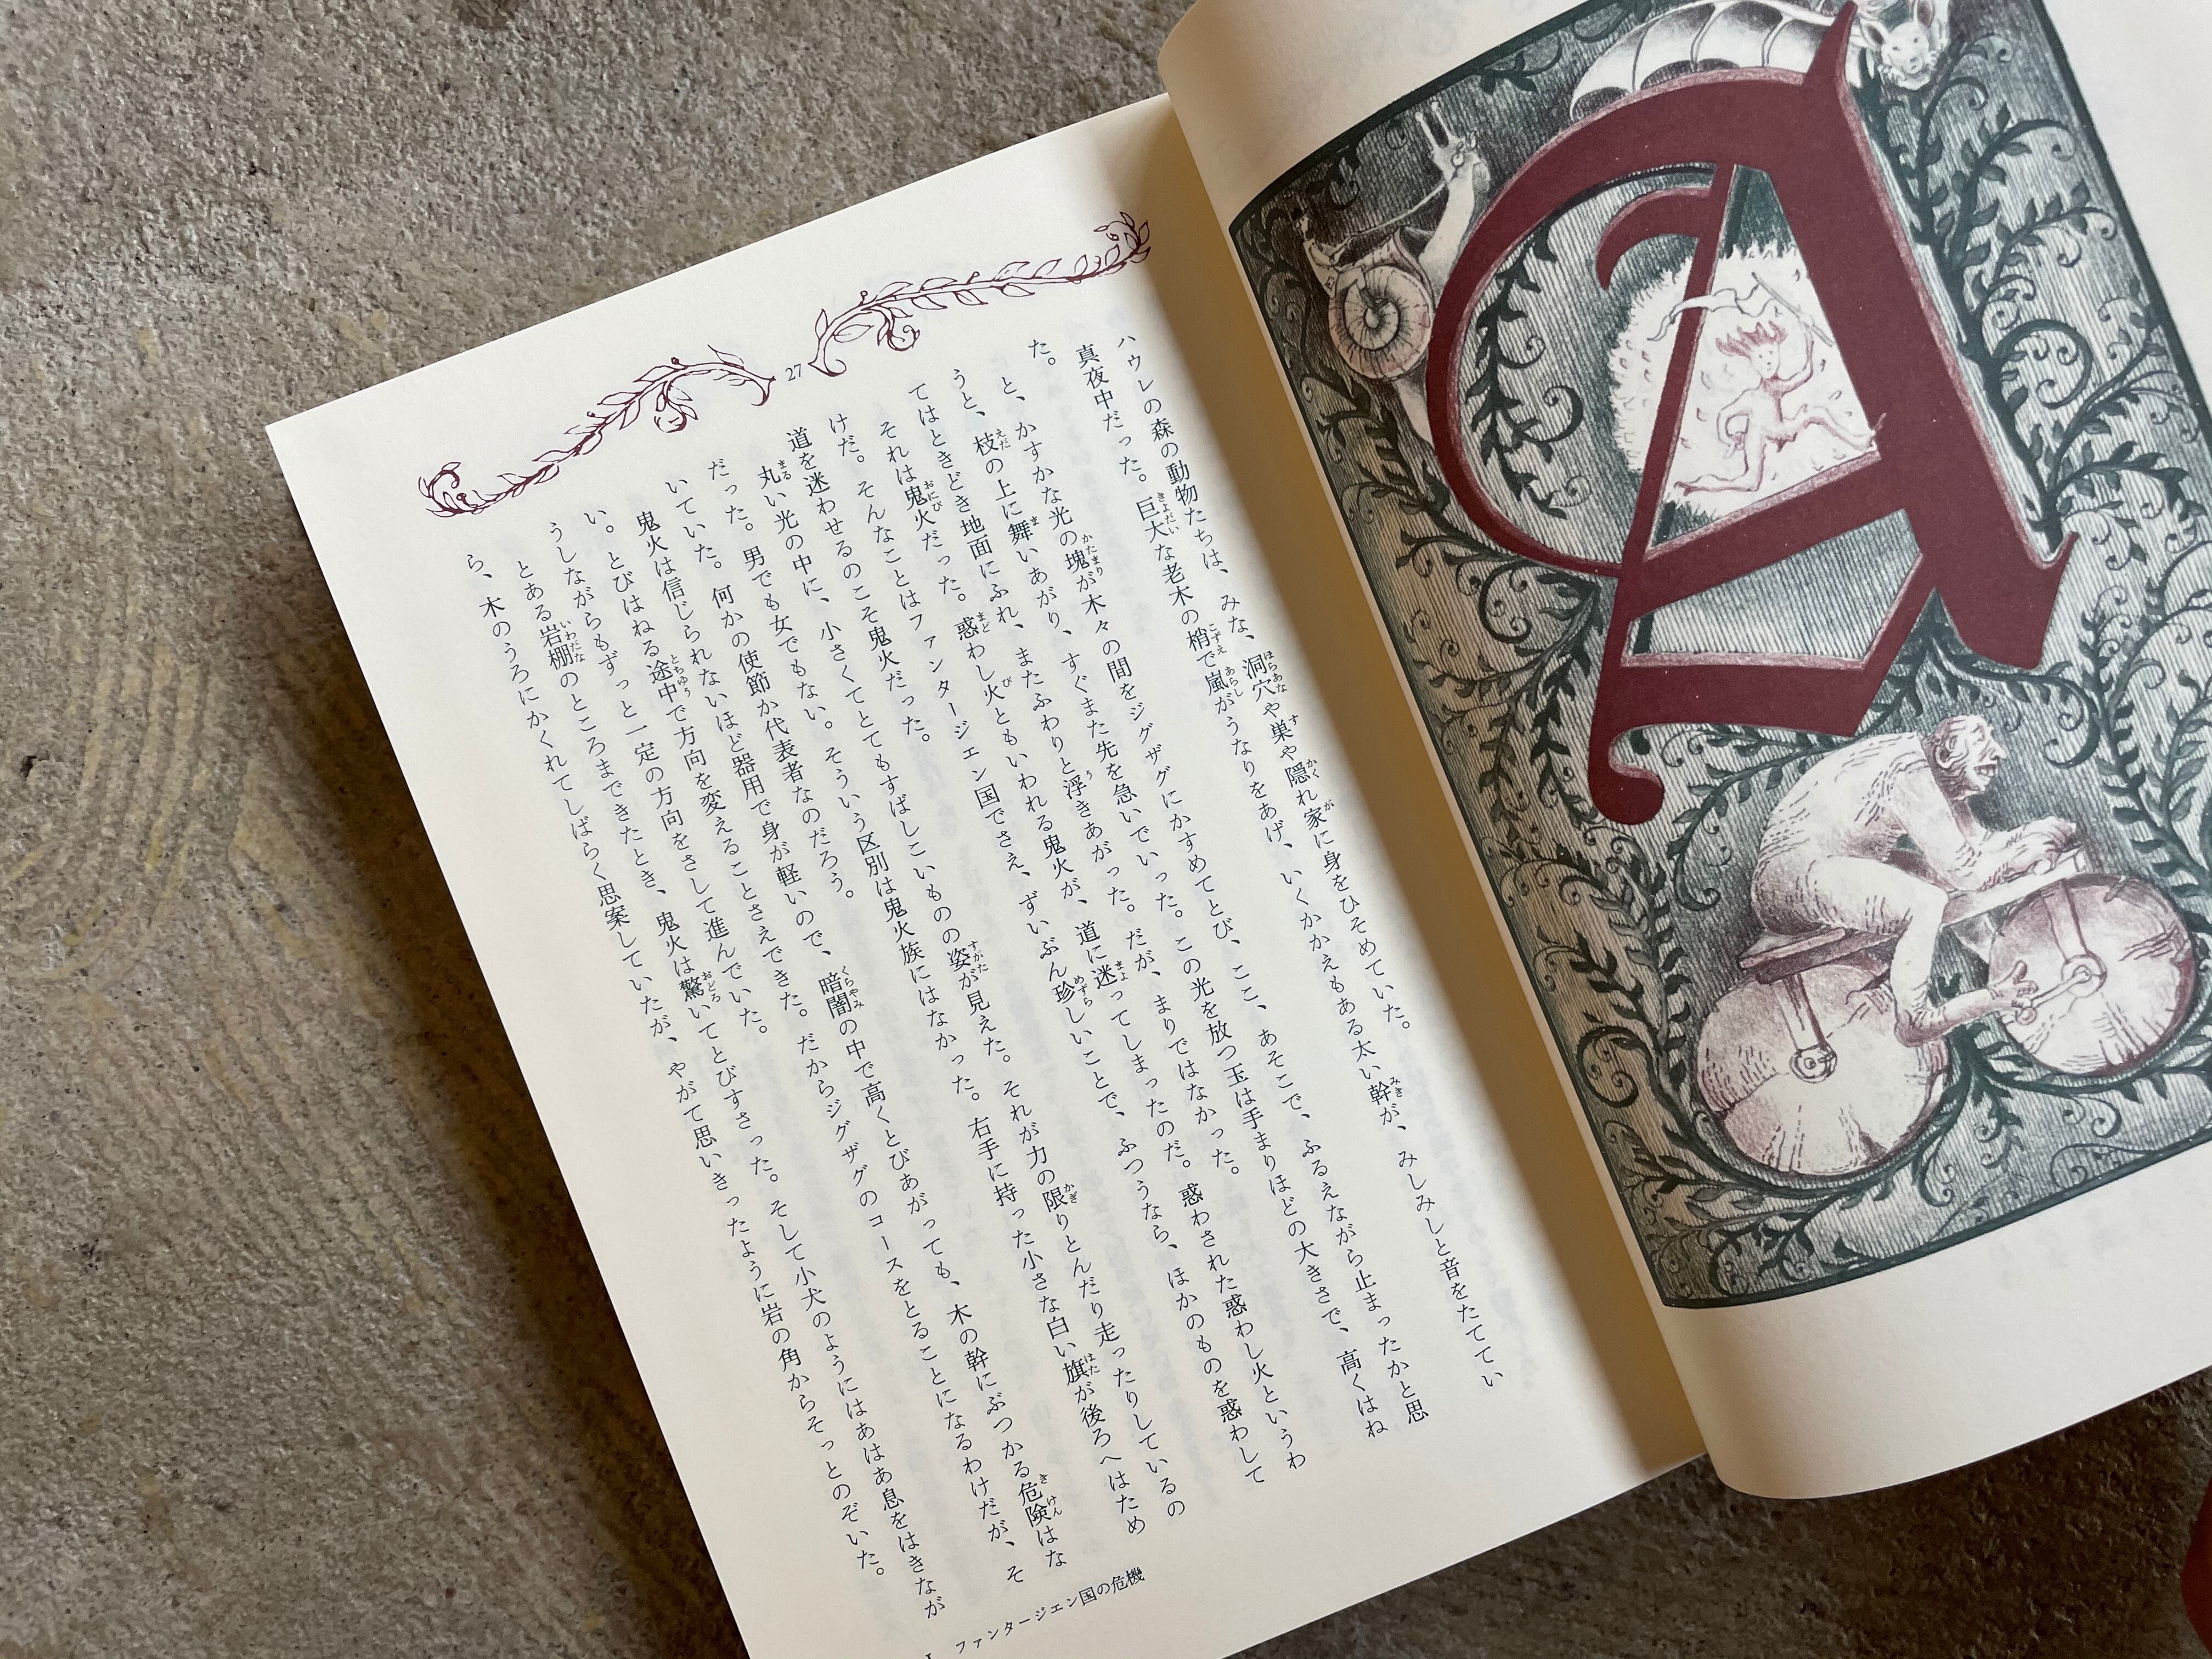 A
ハウレの森の動物たちは、みな、洞穴や巣や隠れ家に身をひそめていた。
真夜中だった。巨大な老木の梢で嵐がうなりをあげ、いくかかえもある太い幹が、みしみしと音をたててい
た。
と、かすかな光の塊が木々の間をジグザグにかすめてとび、ここ、あそこで、ふるえながら止まったかと思
うと、枝の上に舞いあがり、すぐまた先を急いでいった。この光を放つ玉は手まりほどの大きさで、高くはね
てはときどき地面にふれ、またふわりと浮きあがった。だが、まりではなかった。
それは鬼火だった。惑わし火ともいわれる鬼火が、道に迷ってしまったのだ。惑わされた惑わし火というわ
けだ。そんなことはファンタージエン国でさえ、ずいぶん珍しいことで、ふつうなら、ほかのものを惑わして
道を迷わせるのこそ鬼火だった。
丸い光の中に、小さくてとてもすばしこいものの姿が見えた。それが力の限りとんだり走ったりしているの
だった。男でも女でもない。そういう区別は鬼火族にはなかった。右手に持った小さな白い旗が後ろへはため
いていた。何かの使節か代表者なのだろう。
鬼火は信じられないほど器用で身が軽いので、暗闇の中で高くとびあがっても、木の幹にぶつかる危険はな
い。とびはねる途中で方向を変えることさえできた。だからジグザグのコースをとることになるわけだが、そ
うしながらもずっと一定の方向をさして進んでいた。
とある岩棚のところまできたとき、鬼火は驚いてとびすさった。そして小犬のようにはあはあ息をはきなが
ら、木のうろにかくれてしばらく思案していたが、やがて思いきったように岩の角からそっとのぞいた。
27
I ファンタージエン国の危機